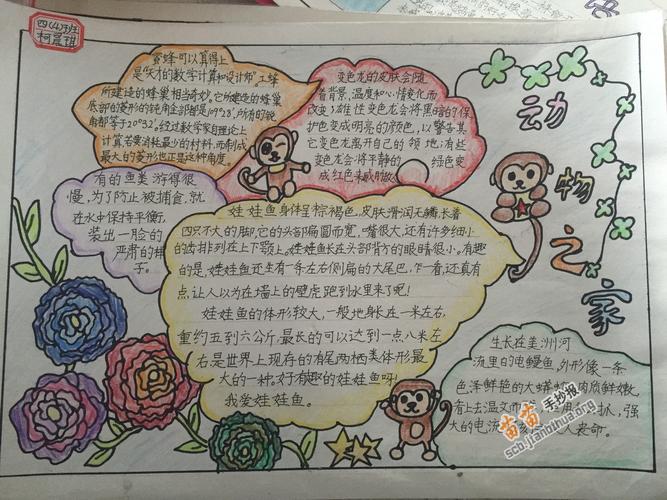 四(4)班
柯晨琪
动物之家
蜜蜂可以算得上
是"天才的数学计算和设计师"。工蜂
所建造的蜂巢相当奇妙。它所建造的蜂巢
底部的菱形的钝角全部都是109°28′,所有的锐
角都等于70°32′。经过数学家们理论上
计算,若要消耗最少的材料,而制成
最大的菱形也正是这种角度。
变色龙的皮肤会随
着背景、温度和心情变化而
改变;雄性变色龙会将黑暗的保
护色变成明亮的颜色,以警告其
它变色龙离开自己的领地;有些
变色龙会将平静的 绿色变
成红色来威吓敌
有的鱼类游得很
慢,为了防止被捕食,就
在水中保持平衡,
装出一脸的
严肃的样
子。
娃娃鱼身体呈棕褐色,皮肤滑润无鳞,长着
四只不大的脚,它的头部扁圆而宽,嘴很大,还有许多细小
的齿排列在上下颚上。娃娃鱼长在头部背方的眼睛很小。有趣
的是,娃娃鱼还生有一条左右侧扁的大尾巴,乍一看,还真有
点,让人以为在墙上的壁虎跑到水里来了呢!
娃娃鱼的体形较大,一般地身长在一米左右,
重约五到六公斤,最长的可以达到一点八米左
右,是世界上现存的有尾两栖类体形最
大的一种,好有趣的娃娃鱼呀!
我爱娃娃鱼。
生长在美洲河
流里的电鳗鱼,外形像一条
色泽鲜艳的大蟒 肉质鲜嫩,
看上去温文而 用 扒,强
大的电流 人丧命。
苗苗手抄报
scb.jianbihua.org